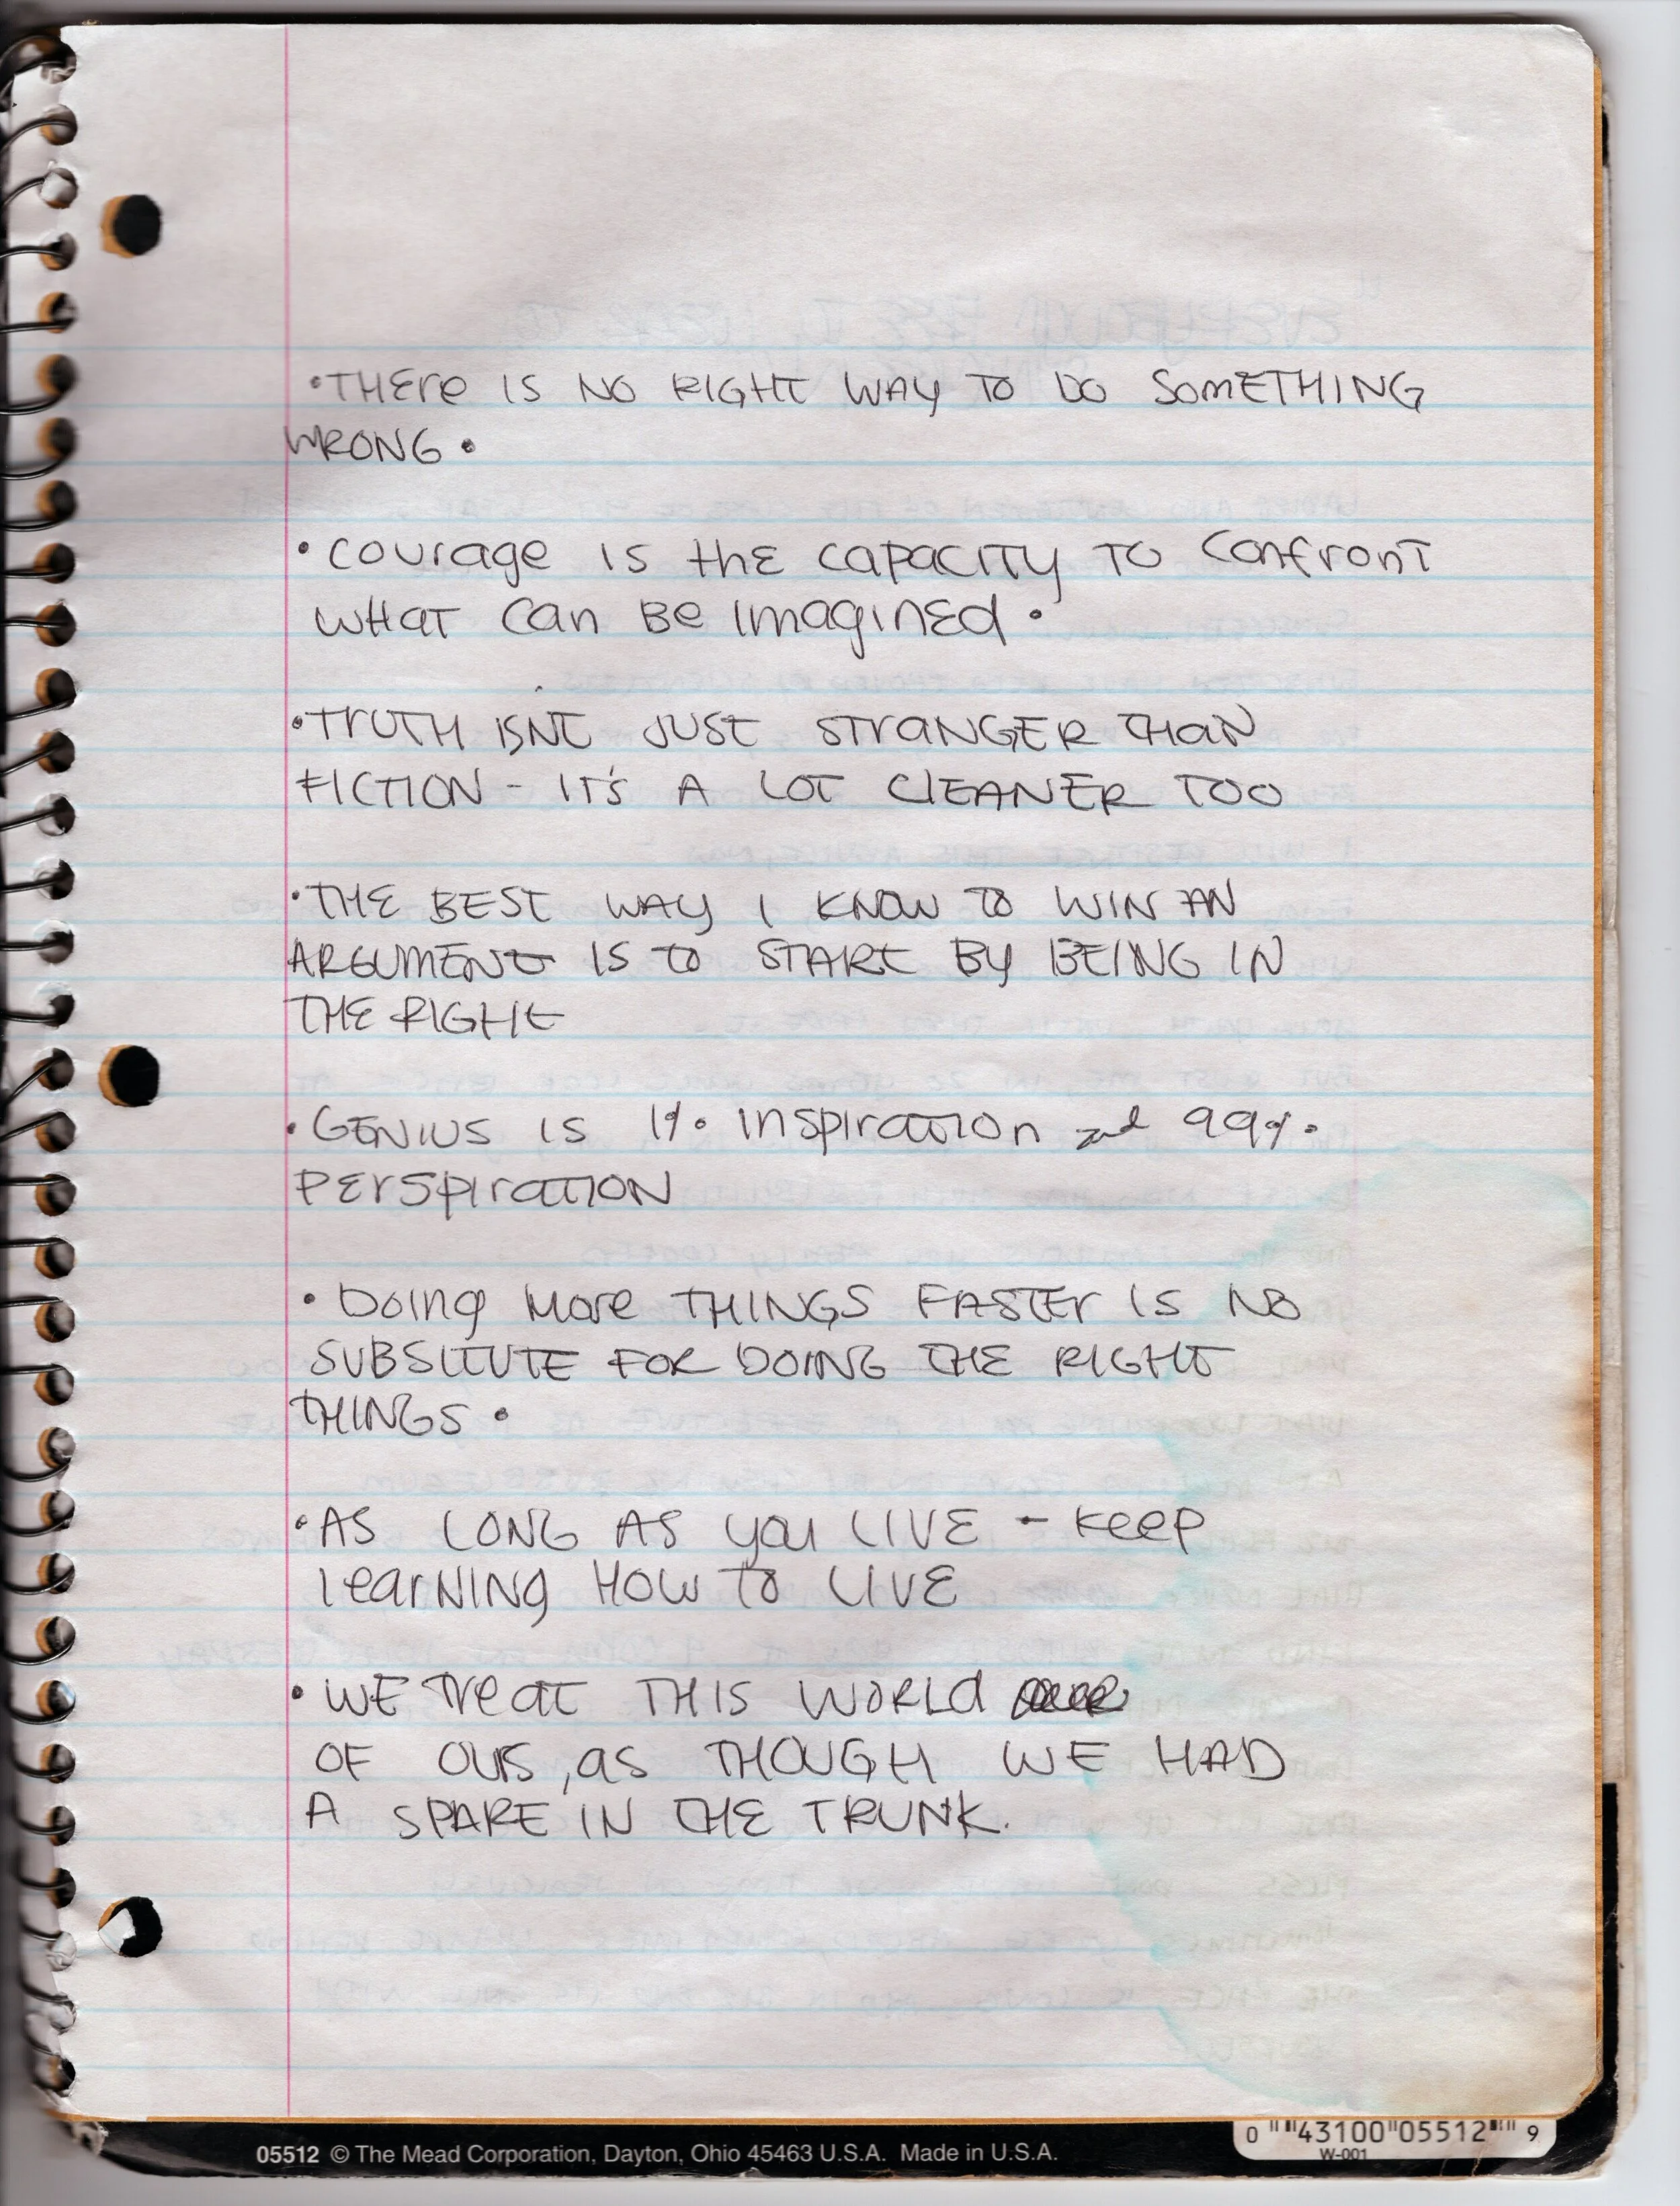 •THERE IS NO RIGHT WAY TO DO SOMETHING
WRONG•
•COURAGE IS THE CAPACITY TO CONFRONT
WHAT CAN BE IMAGINED•
•TRUTH ISNT JUST STRANGER THAN
FICTION - IT'S A LOT CLEANER TOO
•THE BEST WAY I KNOW TO WIN AN
ARGUMENT IS TO START BY BEING IN
THE RIGHT
•GENIUS IS 1% INSPIRATION and 99%
PERSPIRATION
•DOING MORE THINGS FASTER IS NO
SUBSITUTE FOR DOING THE RIGHT
THINGS•
•AS LONG AS YOU LIVE - KEEP
LEARNING HOW TO LIVE
•WE TREAT THIS WORLD
OF OURS, AS THOUGH WE HAD
A SPARE IN THE TRUNK.
05512 © The Mead Corporation, Dayton, Ohio 45463 U.S.A. Made in U.S.A.
0 43100 05512 9
W-001